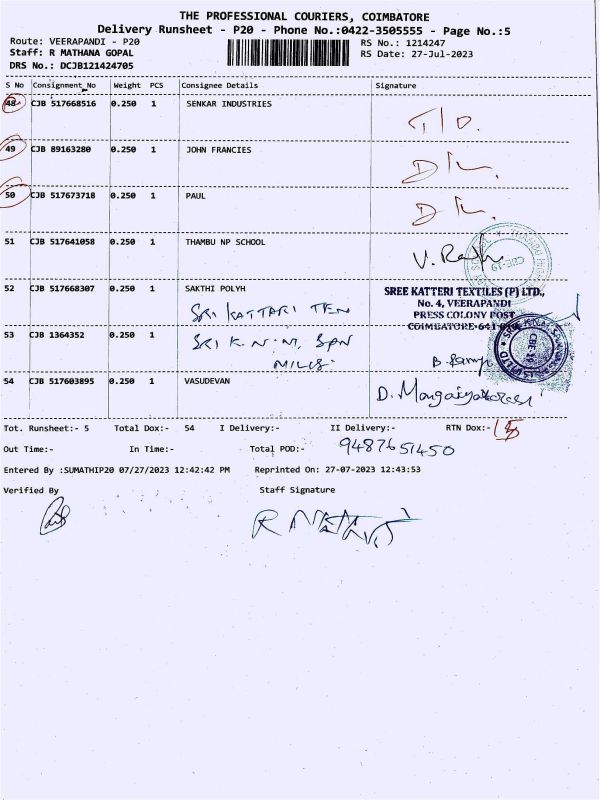 THE PROFESSIONAL COURIERS, COIMBATORE
Delivery Runsheet - P20 - Phone No.:0422-3505555 - Page No.:5
Route: VEERAPANDI - P20
RS No.: 1214247
Staff: R MATHANA GOPAL
RS Date: 27-Jul-2023
DRS No.: DCJB121424705
S No Consignment_No Weight PCS Consignee Details Signature
48 CJB 517668516 0.250 1 SENKAR INDUSTRIES
49 CJB 89163280 0.250 1 JOHN FRANCIES
50 CJB 517673718 0.250 1 PAUL
51 CJB 517641058 0.250 1 THAMBU NP SCHOOL
52 CJB 517668307 0.250 1 SAKTHI POLYH
SRI KATTARI TEN
SREE KATTERI TEXTILES (P) LTD.,
No. 4, VEERAPANDI
PRESS COLONY POST
COIMBATORE-641
53 CJB 1364352 0.250 1 SRI K.N.M. SPN
MILLS.
54 CJB 517603895 0.250 1 VASUDEVAN
D. Mangaiyarkarasi
Tot. Runsheet:- 5 Total Dox:- 54 I Delivery:- II Delivery:- RTN Dox:-
Out Time:- In Time:- Total POD:- 9487651450
Entered By :SUMATHIP20 07/27/2023 12:42:42 PM Reprinted On: 27-07-2023 12:43:53
Verified By Staff Signature